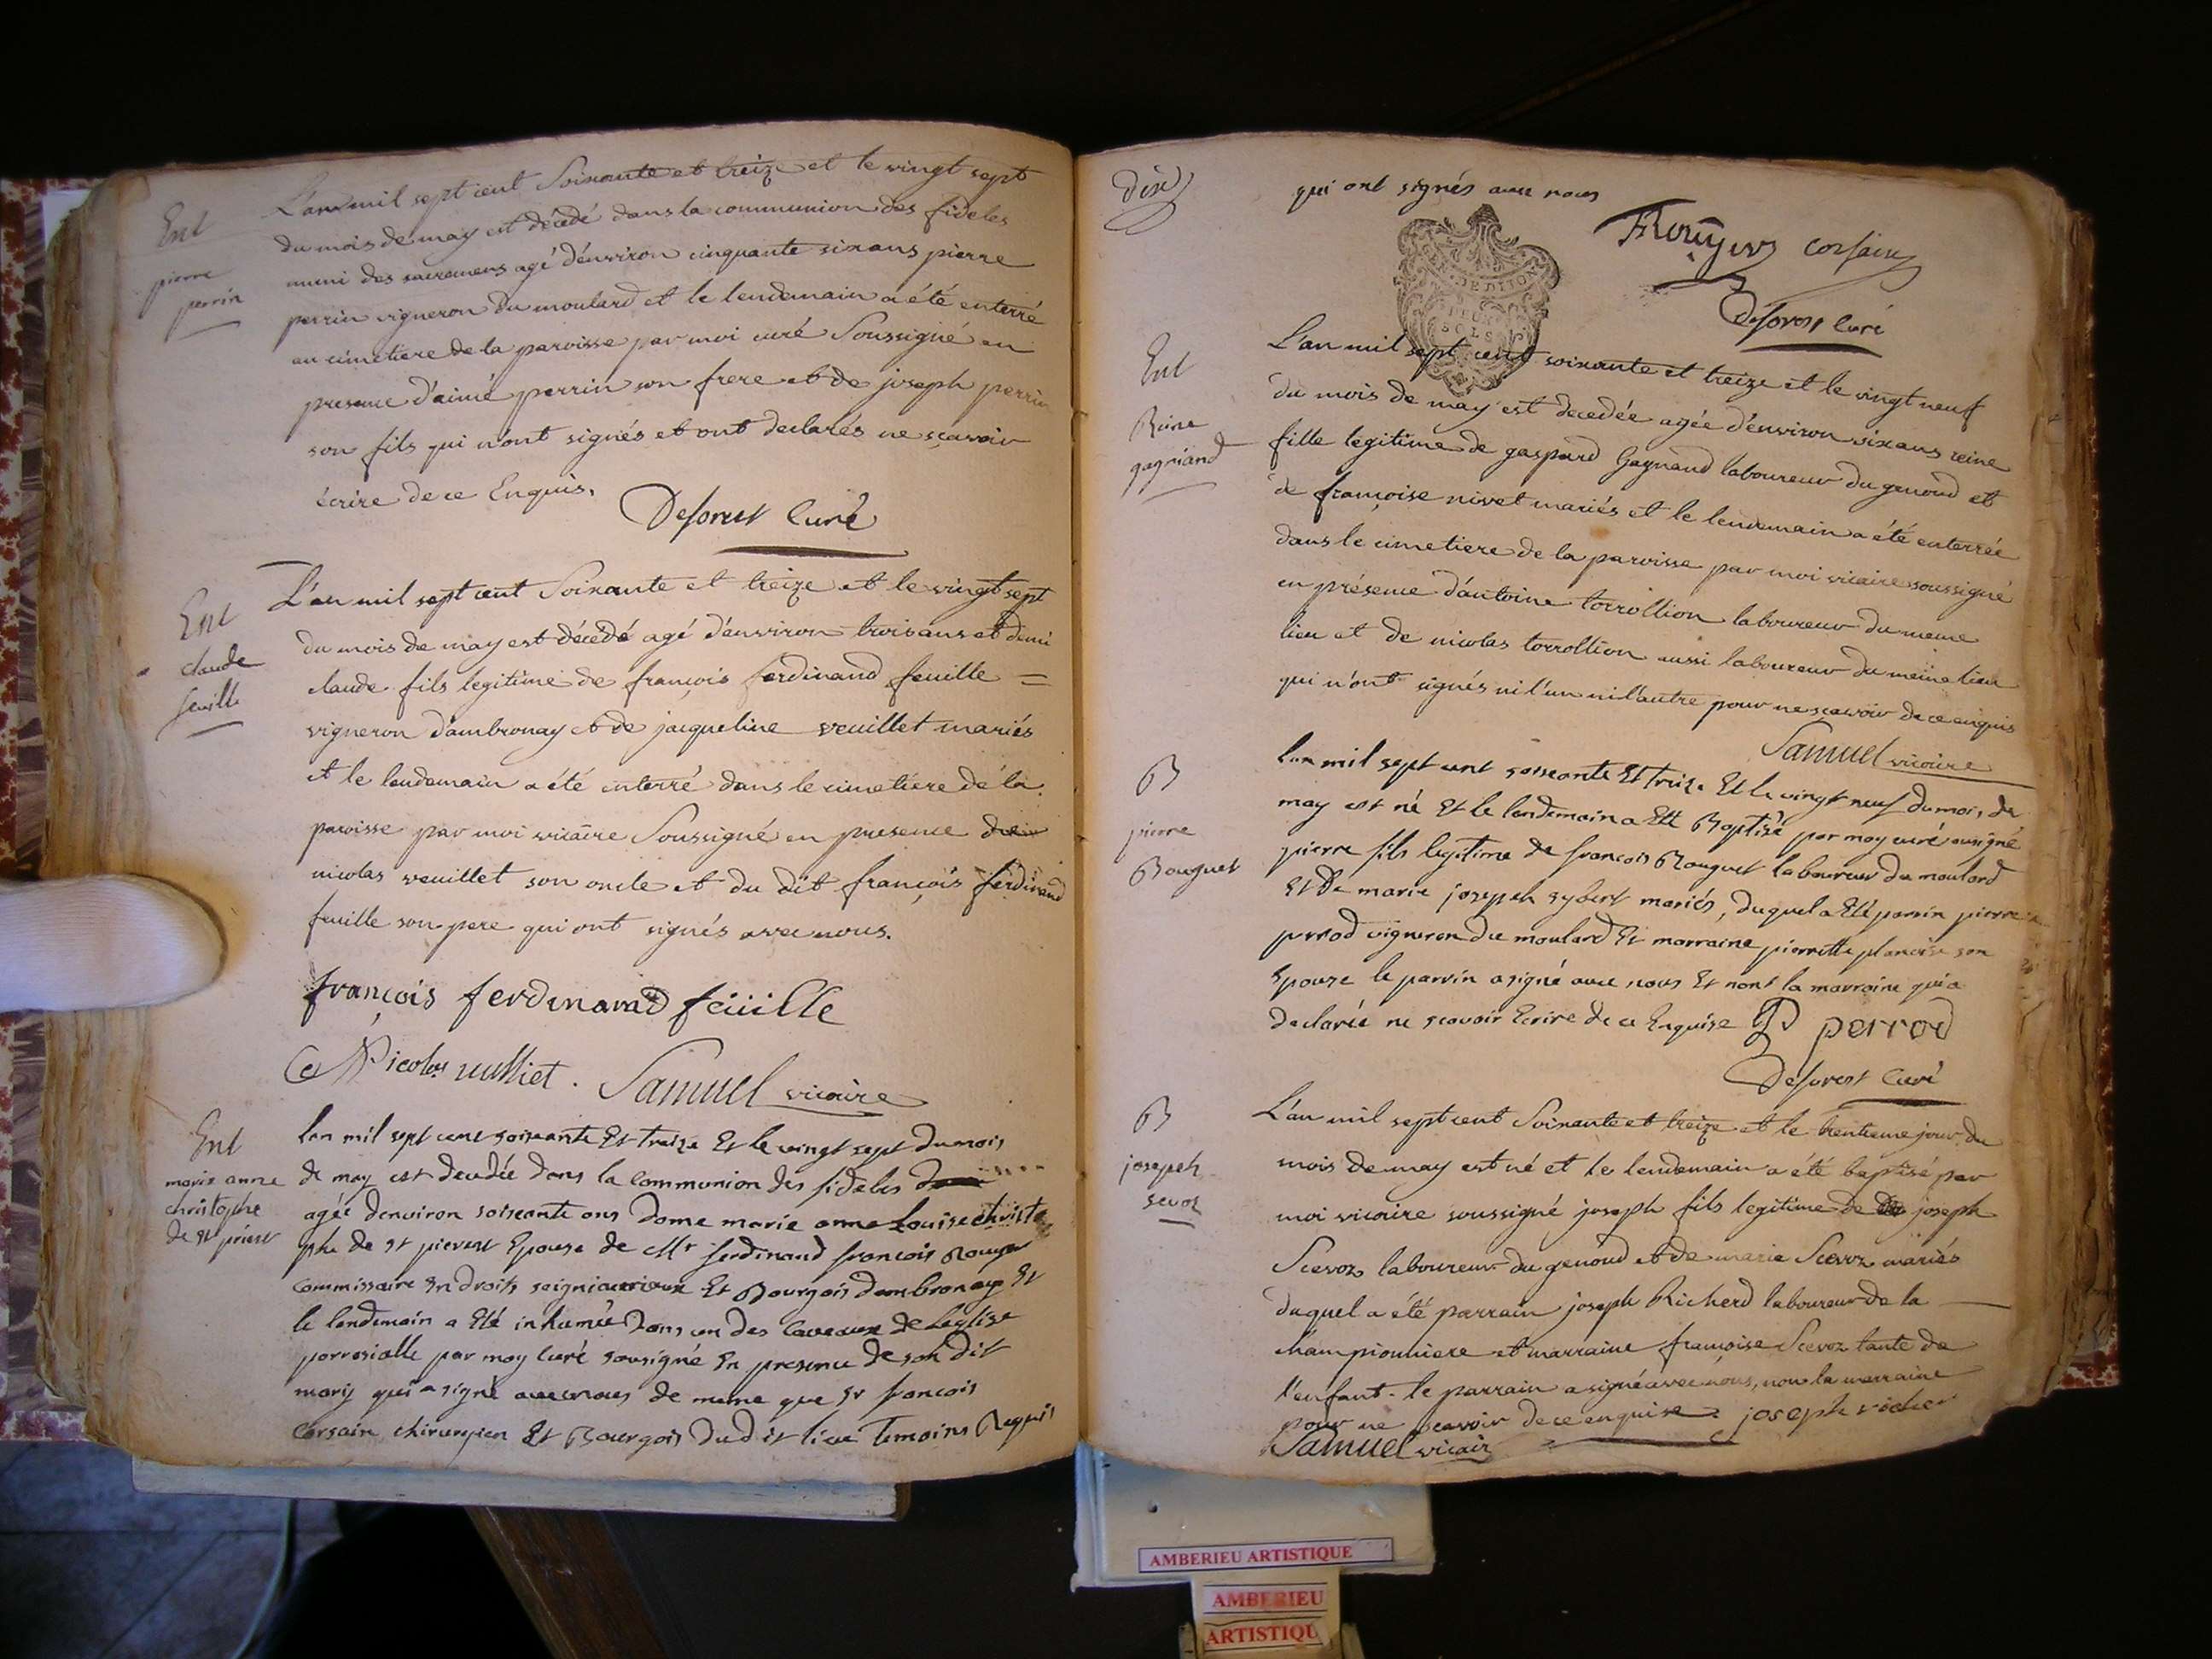 Ent
pierre
perrin
L'an mil sept cent Soixante et treize et le vingt sept
du mois de may est décédé dans la communion des fideles
muni des sacremens agé d'environ cinquante six ans pierre
perrin vigneron du moulard et le lendemain a été enterré
au cimetiere de la paroisse par moi curé Soussigné en
presence d'aimé perrin son frere et de joseph perrin
son fils qui n'ont signés et ont declarés ne sçavoir
écrire de ce Enquis.
Deforest Curé
Ent
claude
feuille
L'an mil sept cent Soixante et treize et le vingt sept
du mois de may est décédé agé d'environ trois ans et demi
claude fils legitime de françois ferdinand feuille =
vigneron d'ambronay et de jacqueline veuillet mariés
et le lendemain a été enterré dans le cimetiere de la
paroisse par moi vicaire Soussigné en presence de
nicolas veuillet son oncle et du dit françois ferdinand
feuille son pere qui ont signés avec nous.
françois ferdinand feüille
Nicolas vulliet. Samuel vicaire
Ent
marie anne
christophe
de st priest
lan mil sept cent soiscante Et Treize Et le vingt sept du mois
de may est decedée dans la Communion des fideles
agée denviron soiscante ans Dame marie anne Louise christo
phe de st pierest Epouse de Mr ferdinand francois Rouyer
Commissaire En droits seigniauriaux Et Bourgois dambronay Et
le landemain a Eté inhumée Dans un des Caveaux de Leglise
parrosialle par moy Curé sousigné En presence de son dit
mary qui a signé avec nous de meme que sr francois
Corsain chirurgien Et Bourgois Dudit lieu Temoins Requis
Dix
qui ont signés avec nous
Rouyer corsain
Deforest Curé
DEUX
SOLS
Ent
Reine
gagniand
L'an mil sept cent soixante et treize et le vingt neuf
du mois de may est decedée agée d'environ six ans reine
fille legitime de gaspard Gagnand laboureur du genoud et
de françoise nivet mariés et le lendemain a été enterrée
dans le cimetiere de la paroisse par moi vicaire soussigné
en présence d'antoine torrollion laboureur du meme
lieu et de nicolas torrollion aussi laboureur du meme lieu
qui n'ont signés ni l'un ni l'autre pour ne scavoir de ce enquis
Samuel vicaire
B
pierre
Bouguet
lan mil sept cent soiscante Et Treize Et le vingt neuf du mois de
may est né Et le landemain a Eté Baptisé par moy curé sousigné
pierre fils legitime de francois Bouguet laboureur du moulard
Et De marie joseph sybert mariés, duquel a Eté parrin pierre
perrod vigneron du moulard Et marraine pierrette planoise son
Epouse le parrin a signé avec nous Et nont la marraine qui a
declarée ne scavoir Ecrire de ce Enquise P perrod
Deforest Curé
B
joseph
sevoz
L'an mil sept cent Soixante et treize et le trentieme jour du
mois de may est né et le lendemain a été baptisé par
moi vicaire soussigné joseph fils legitime de joseph
Scevoz laboureur du genoud et de marie Scevoz mariés
duquel a été parrain joseph Richerd laboureur de la
championniere et marraine françoise Scevoz tante de
l'enfant. le parrain a signé avec nous, non la marraine
pour ne scavoir de ce enquise. joseph richer
Samuel vicair
AMBERIEU ARTISTIQUE
AMBERIEU
ARTISTIQU